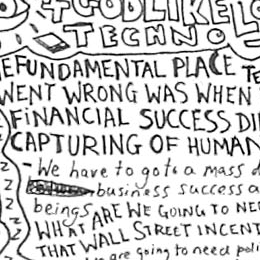 +GODLIKE
TECHNO
FUNDAMENTAL PLACE
WENT WRONG WAS WHEN
FINANCIAL SUCCESS
CAPTURING OF HUMAN
- We have to gots a mass
business success a
beings ARE WE GOING TO
WHAT
THAT WALL STREET
are going to need